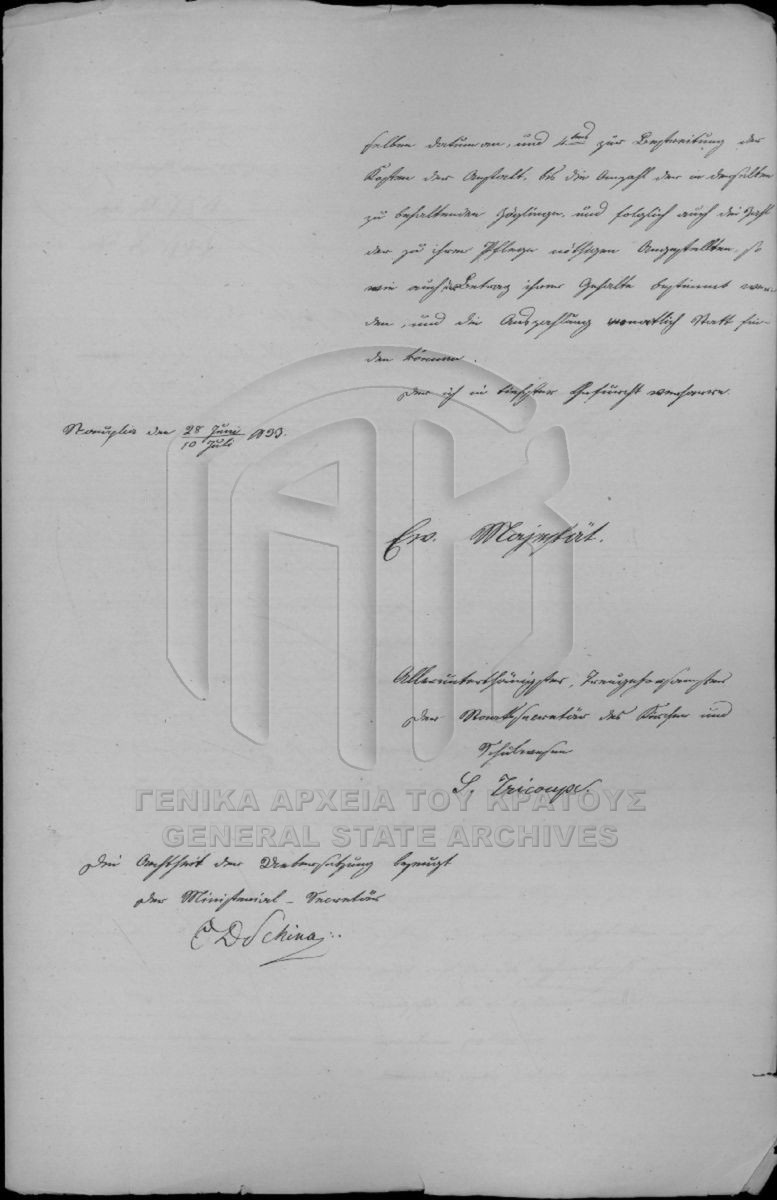 selben datum an, und 4tens zur Bestreitung der
Kosten der Anstalt, bis die Anzahl der in derselben
zu behaltenden Zöglinge, und folglich auch die Zahl
der zu ihrer Pflege nöthigen Angestellten, so
wie auch der Betrag ihrer Gehalte bestimmt wer-
den, und die Auszahlung monatlich Statt fin-
den können.
Der ich in tiefster Ehrfurcht verharre.
Nauplia den 28 Juni / 10 Juli 1833.
Ew. Majestät.
Allerunterthänigster, Treugehorsamster
Der Staatssecretär des Kirchen und
Schulwesen
S. Tricoupi.
ΓΕΝΙΚΑ ΑΡΧΕΙΑ ΤΟΥ ΚΡΑΤΟΥΣ
GENERAL STATE ARCHIVES
Die Aechtheit der Uebersetzung bezeugt
Der Ministerial-Secretär
C D Schina